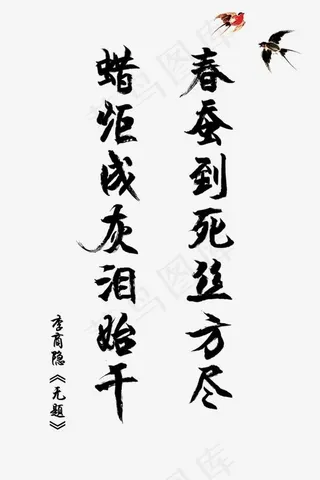 春蚕到死丝方尽
蜡炬成灰泪始干
李商隐《无题》